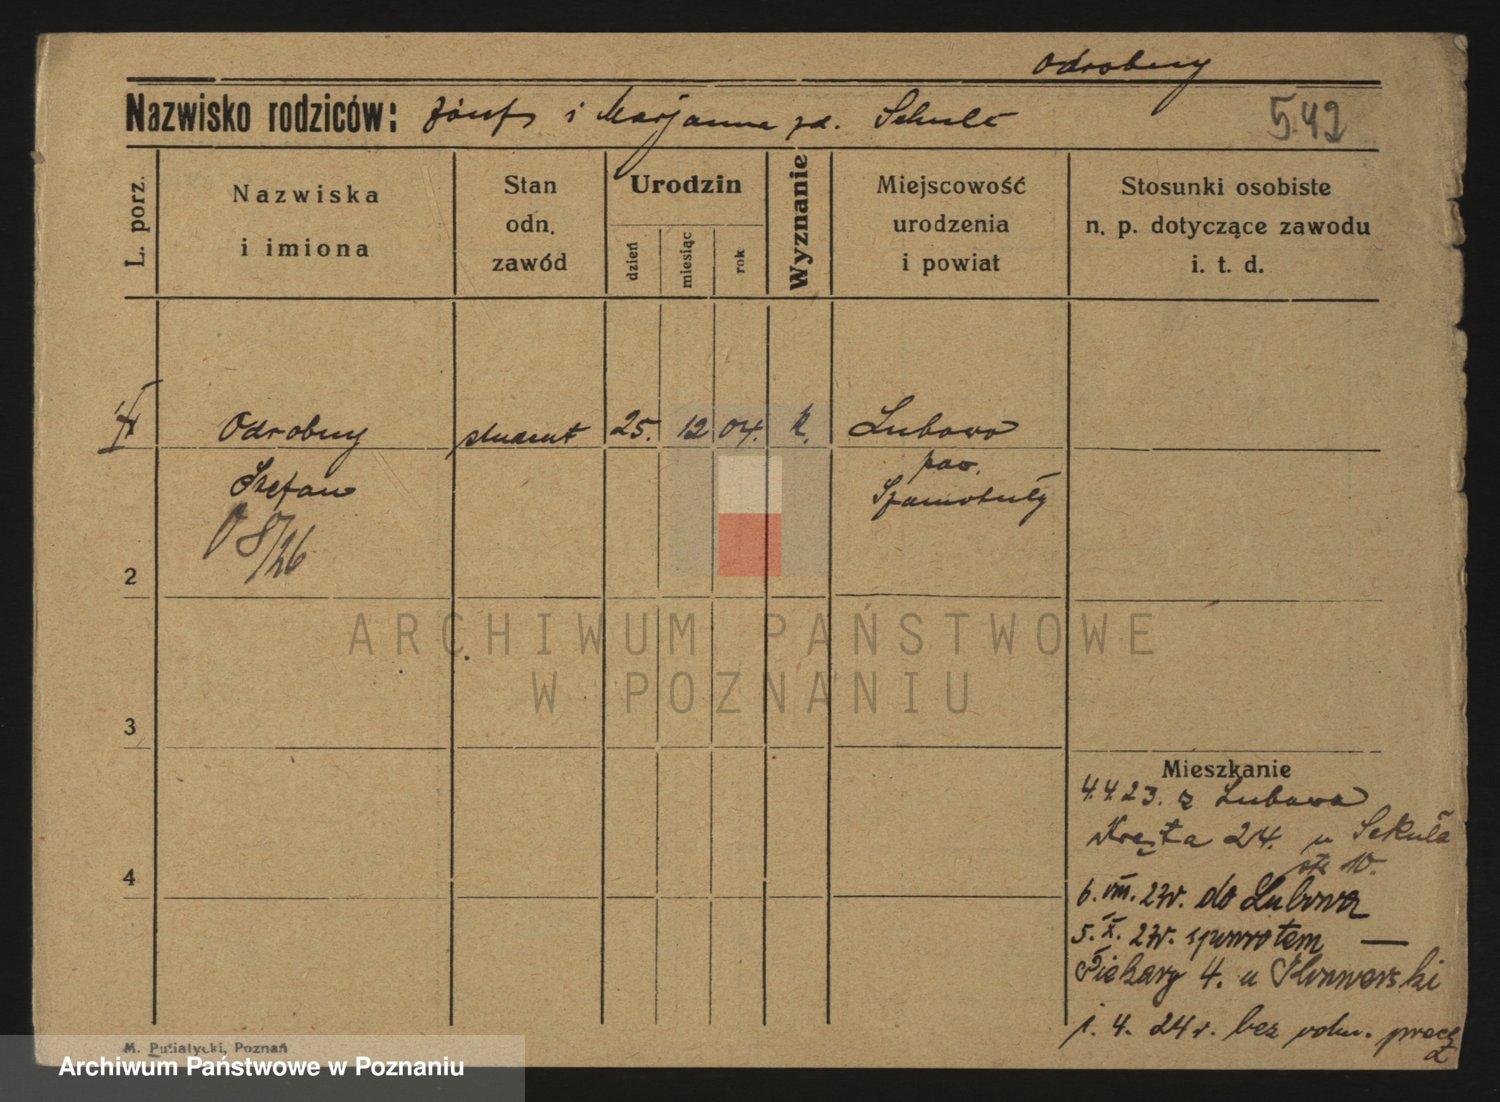 Odrobny
Nazwisko rodziców: Józef i Marjanna zd. Schulz
542
L. porz.
Nazwiska
i imiona
Stan
odn.
zawód
Urodzin
dzień
miesiąc
rok
Wyznanie
Miejscowość
urodzenia
i powiat
Stosunki osobiste
n. p. dotyczące zawodu
i. t. d.
Odrobny student 25. 12 04. k. Lubowo
pow.
Stefan Szamotuły
8/26
2
3
4
Mieszkanie
4.4.23. z Lubowa
Kręta 24. u Sekuła
10.
6. VIII. 23r. do Lubowa
5. X. 23r. spowrotem —
Piekary 4. u
1. 4. 24r. bez
M. Putiatycki, Poznań
ARCHIWUM PAŃSTWOWE
W POZNANIU
Archiwum Państwowe w Poznaniu